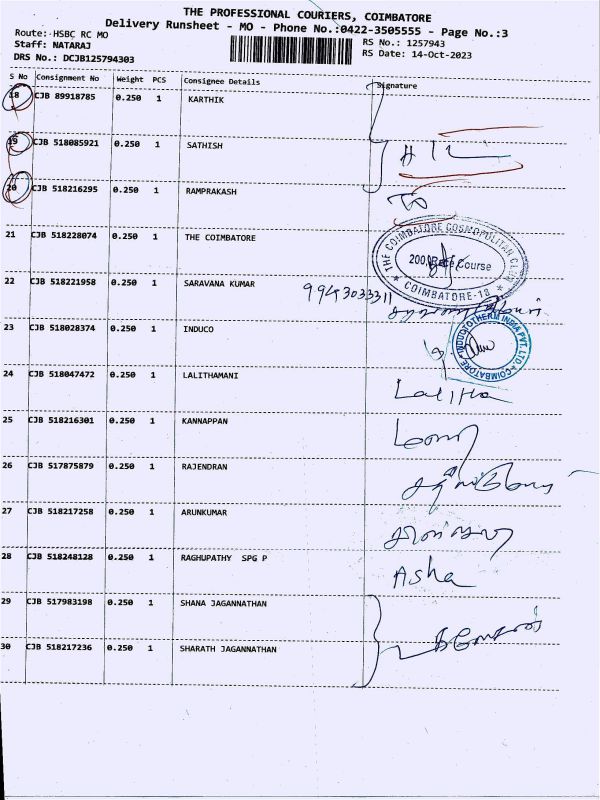 THE PROFESSIONAL COURIERS, COIMBATORE
Delivery Runsheet - MO - Phone No.:0422-3505555 - Page No.:3
Route: HSBC RC MO
Staff: NATARAJ
DRS No.: DCJB125794303
RS No.: 1257943
RS Date: 14-Oct-2023
S No Consignment No Weight PCS Consignee Details Signature
18 CJB 89918785 0.250 1 KARTHIK
19 CJB 518085921 0.250 1 SATHISH
20 CJB 518216295 0.250 1 RAMPRAKASH
21 CJB 518228074 0.250 1 THE COIMBATORE
THE COIMBATORE COSMOPOLITAN CLUB
200, Race Course
COIMBATORE-18
22 CJB 518221958 0.250 1 SARAVANA KUMAR 9943033311
23 CJB 518028374 0.250 1 INDUCO
INDUCTOTHERM INDIA PVT. LTD. COIMBATORE
24 CJB 518047472 0.250 1 LALITHAMANI Lalitha
25 CJB 518216301 0.250 1 KANNAPPAN
26 CJB 517875879 0.250 1 RAJENDRAN
27 CJB 518217258 0.250 1 ARUNKUMAR
28 CJB 518248128 0.250 1 RAGHUPATHY SPG P Asha
29 CJB 517983198 0.250 1 SHANA JAGANNATHAN
30 CJB 518217236 0.250 1 SHARATH JAGANNATHAN